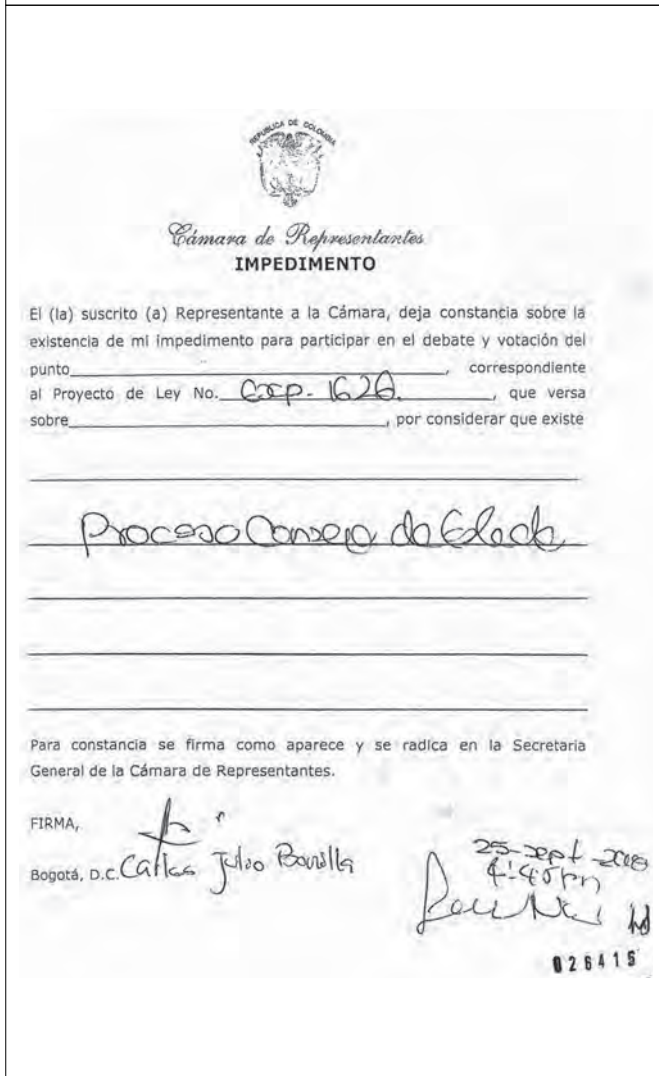 REPUBLICA DE COLOMBIA
Cámara de Representantes
IMPEDIMENTO
El (la) suscrito (a) Representante a la Cámara, deja constancia sobre la
existencia de mi impedimento para participar en el debate y votación del
punto , correspondiente
al Proyecto de Ley No. Exp. 1626. , que versa
sobre , por considerar que existe
Proceso Consejo de Estado
Para constancia se firma como aparece y se radica en la Secretaria
General de la Cámara de Representantes.
FIRMA,
Bogotá, D.C. Carlos Julio Bonilla
25-sept-2018
4:45pm
026415